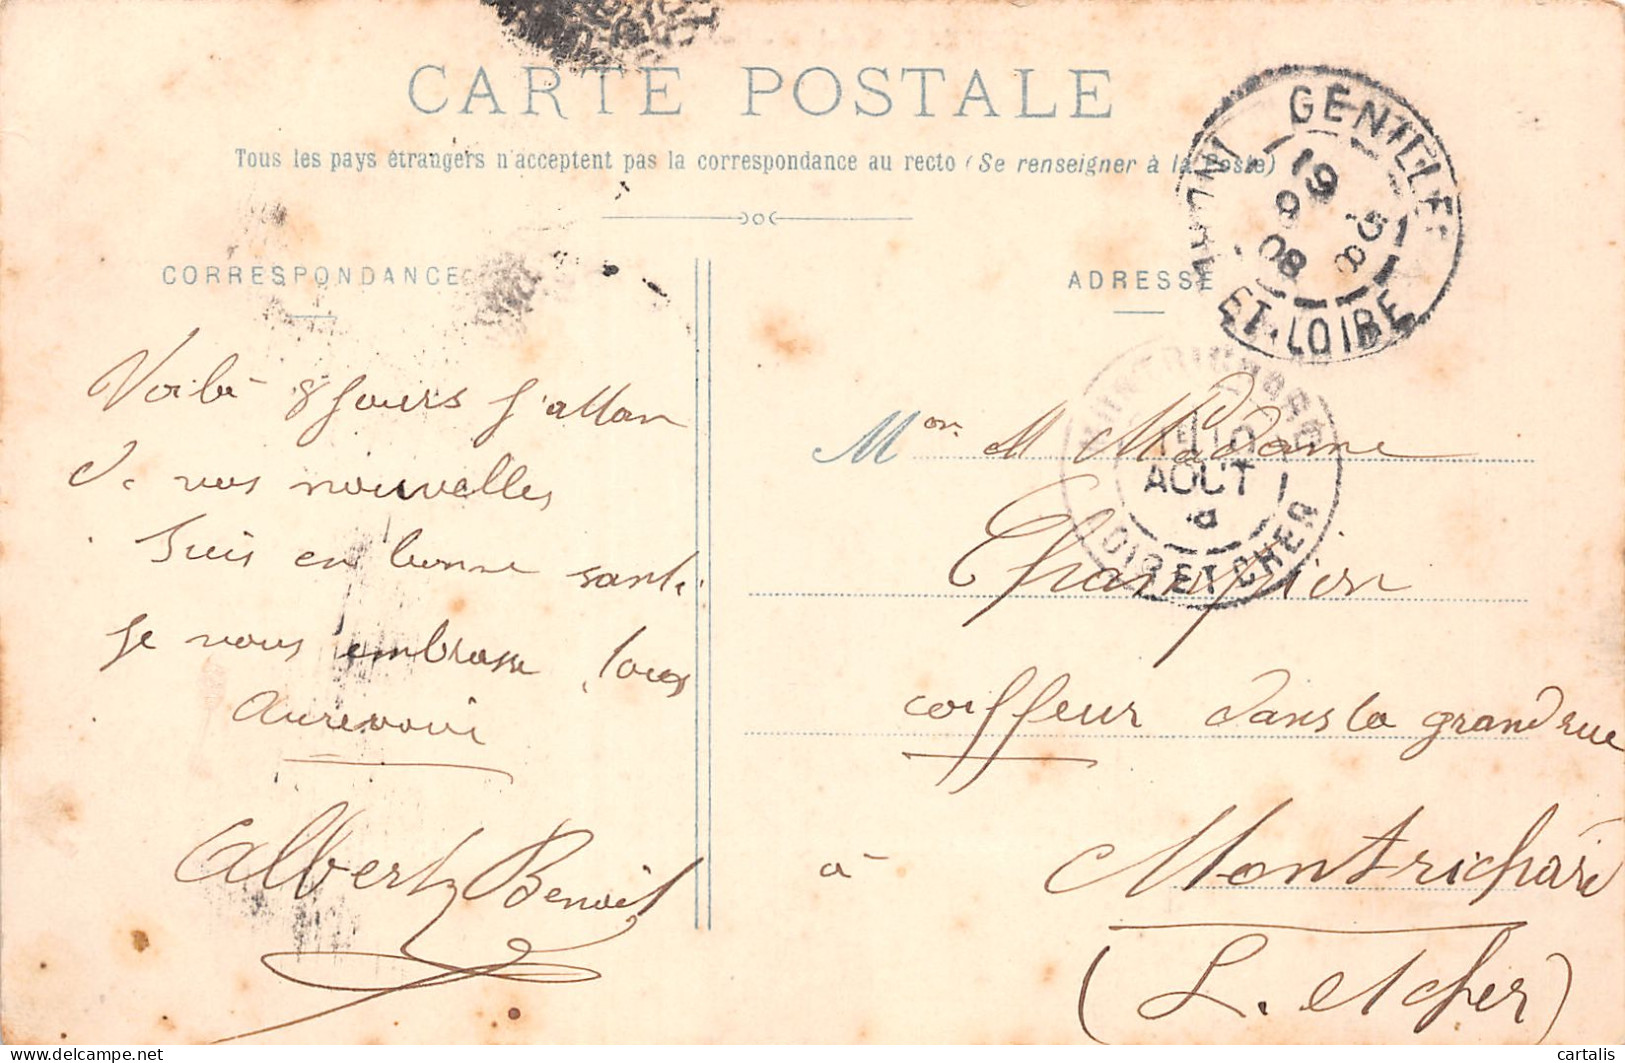 CARTE POSTALE
Tous les pays étrangers n'acceptent pas la correspondance au recto (Se renseigner à la Poste)
CORRESPONDANCE
Voilà 8 Jours J'attan
De vos nouvelles
Suis en bonne santé
Je vous embrasse tous
Aurevoir
Albert Benoit
ADRESSE
GENTILLE
19
9 -5
08 8
ET-LOIRE
MONTRICHARD
AOUT
LOIR ET CHER
Mon M Madame
Champion
coiffeur dans la grand rue
à Montrichard
(L. et Cher)
cartalis
delcampe.net